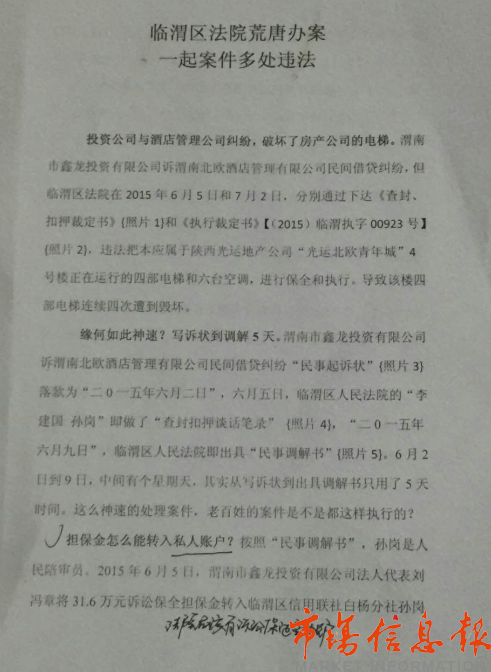 临渭区法院荒唐办案
一起案件多处违法
投资公司与酒店管理公司纠纷，破坏了房产公司的电梯。渭南
市鑫龙投资有限公司诉渭南北欧酒店管理有限公司民间借贷纠纷，但
临渭区法院在 2015 年 6 月 5 日和 7 月 2 日，分别通过下达《查封、
扣押裁定书》{照片 1}和《执行裁定书》【（2015）临渭执字 00923 号】
{照片 2}，违法把本应属于陕西光运地产公司“光运北欧青年城”4
号楼正在运行的四部电梯和六台空调，进行保全和执行。导致该楼四
部电梯连续四次遭到毁坏。
缘何如此神速？写诉状到调解 5 天。渭南市鑫龙投资有限公司
诉渭南北欧酒店管理有限公司民间借贷纠纷“民事起诉状”{照片 3}
落款为“二０一五年六月二日”，六月五日，临渭区人民法院的“李
建国 孙岗”即做了“查封扣押谈话笔录” {照片 4}，“二０一五年
六月九日”，临渭区人民法院即出具“民事调解书”{照片 5}。6 月 2
日到 9 日，中间有个星期天，其实从写诉状到出具调解书只用了 5 天
时间。这么神速的处理案件，老百姓的案件是不是都这样执行的？
担保金怎么能转入私人账户？按照“民事调解书”，孙岗是人
民陪审员。2015 年 6 月 5 日，渭南市鑫龙投资有限公司法人代表刘
冯章将 31.6 万元诉讼保全担保金转入临渭区信用联社白杨分社孙岗
市场信息報
MARKET INFORMATION